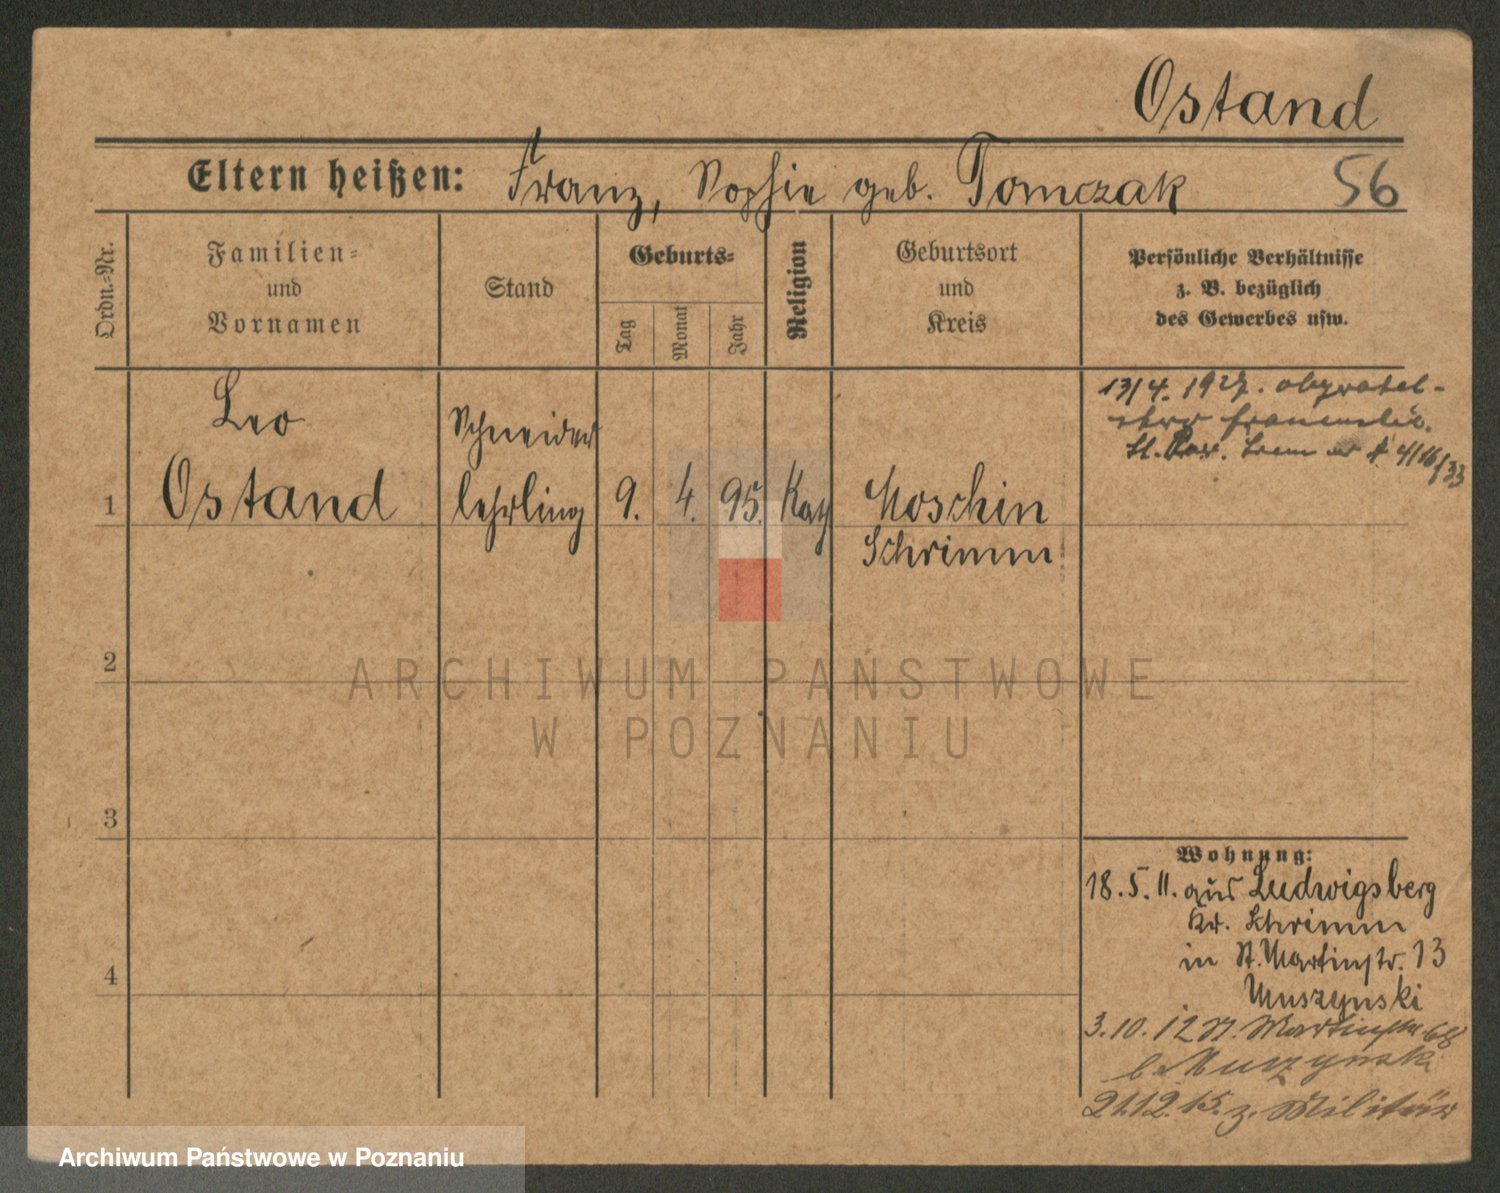 Ostand
Eltern heißen: Franz, Sophie geb. Tomczak
56
Ordn.-Nr.
Familien-
und
Vornamen
Stand
Geburts-
Tag
Monat
Jahr
Religion
Geburtsort
und
Kreis
Persönliche Verhältnisse
z. B. bezüglich
des Gewerbes usw.
1
Leo
Ostand
Schneider
lehrling
9.
4.
95.
Kath
Moschin
Schrimm
13/4. 1927. obywatel-
stwo
2
3
4
Wohnung:
18.5.11. aus Ludwigsberg
Kr. Schrimm
in St. Martinstr. 13
Muszynski
3.10.12 St. Martinstr. 68
b. Muszynski
21.12.15. z. Militär
ARCHIWUM PAŃSTWOWE
W POZNANIU
Archiwum Państwowe w Poznaniu